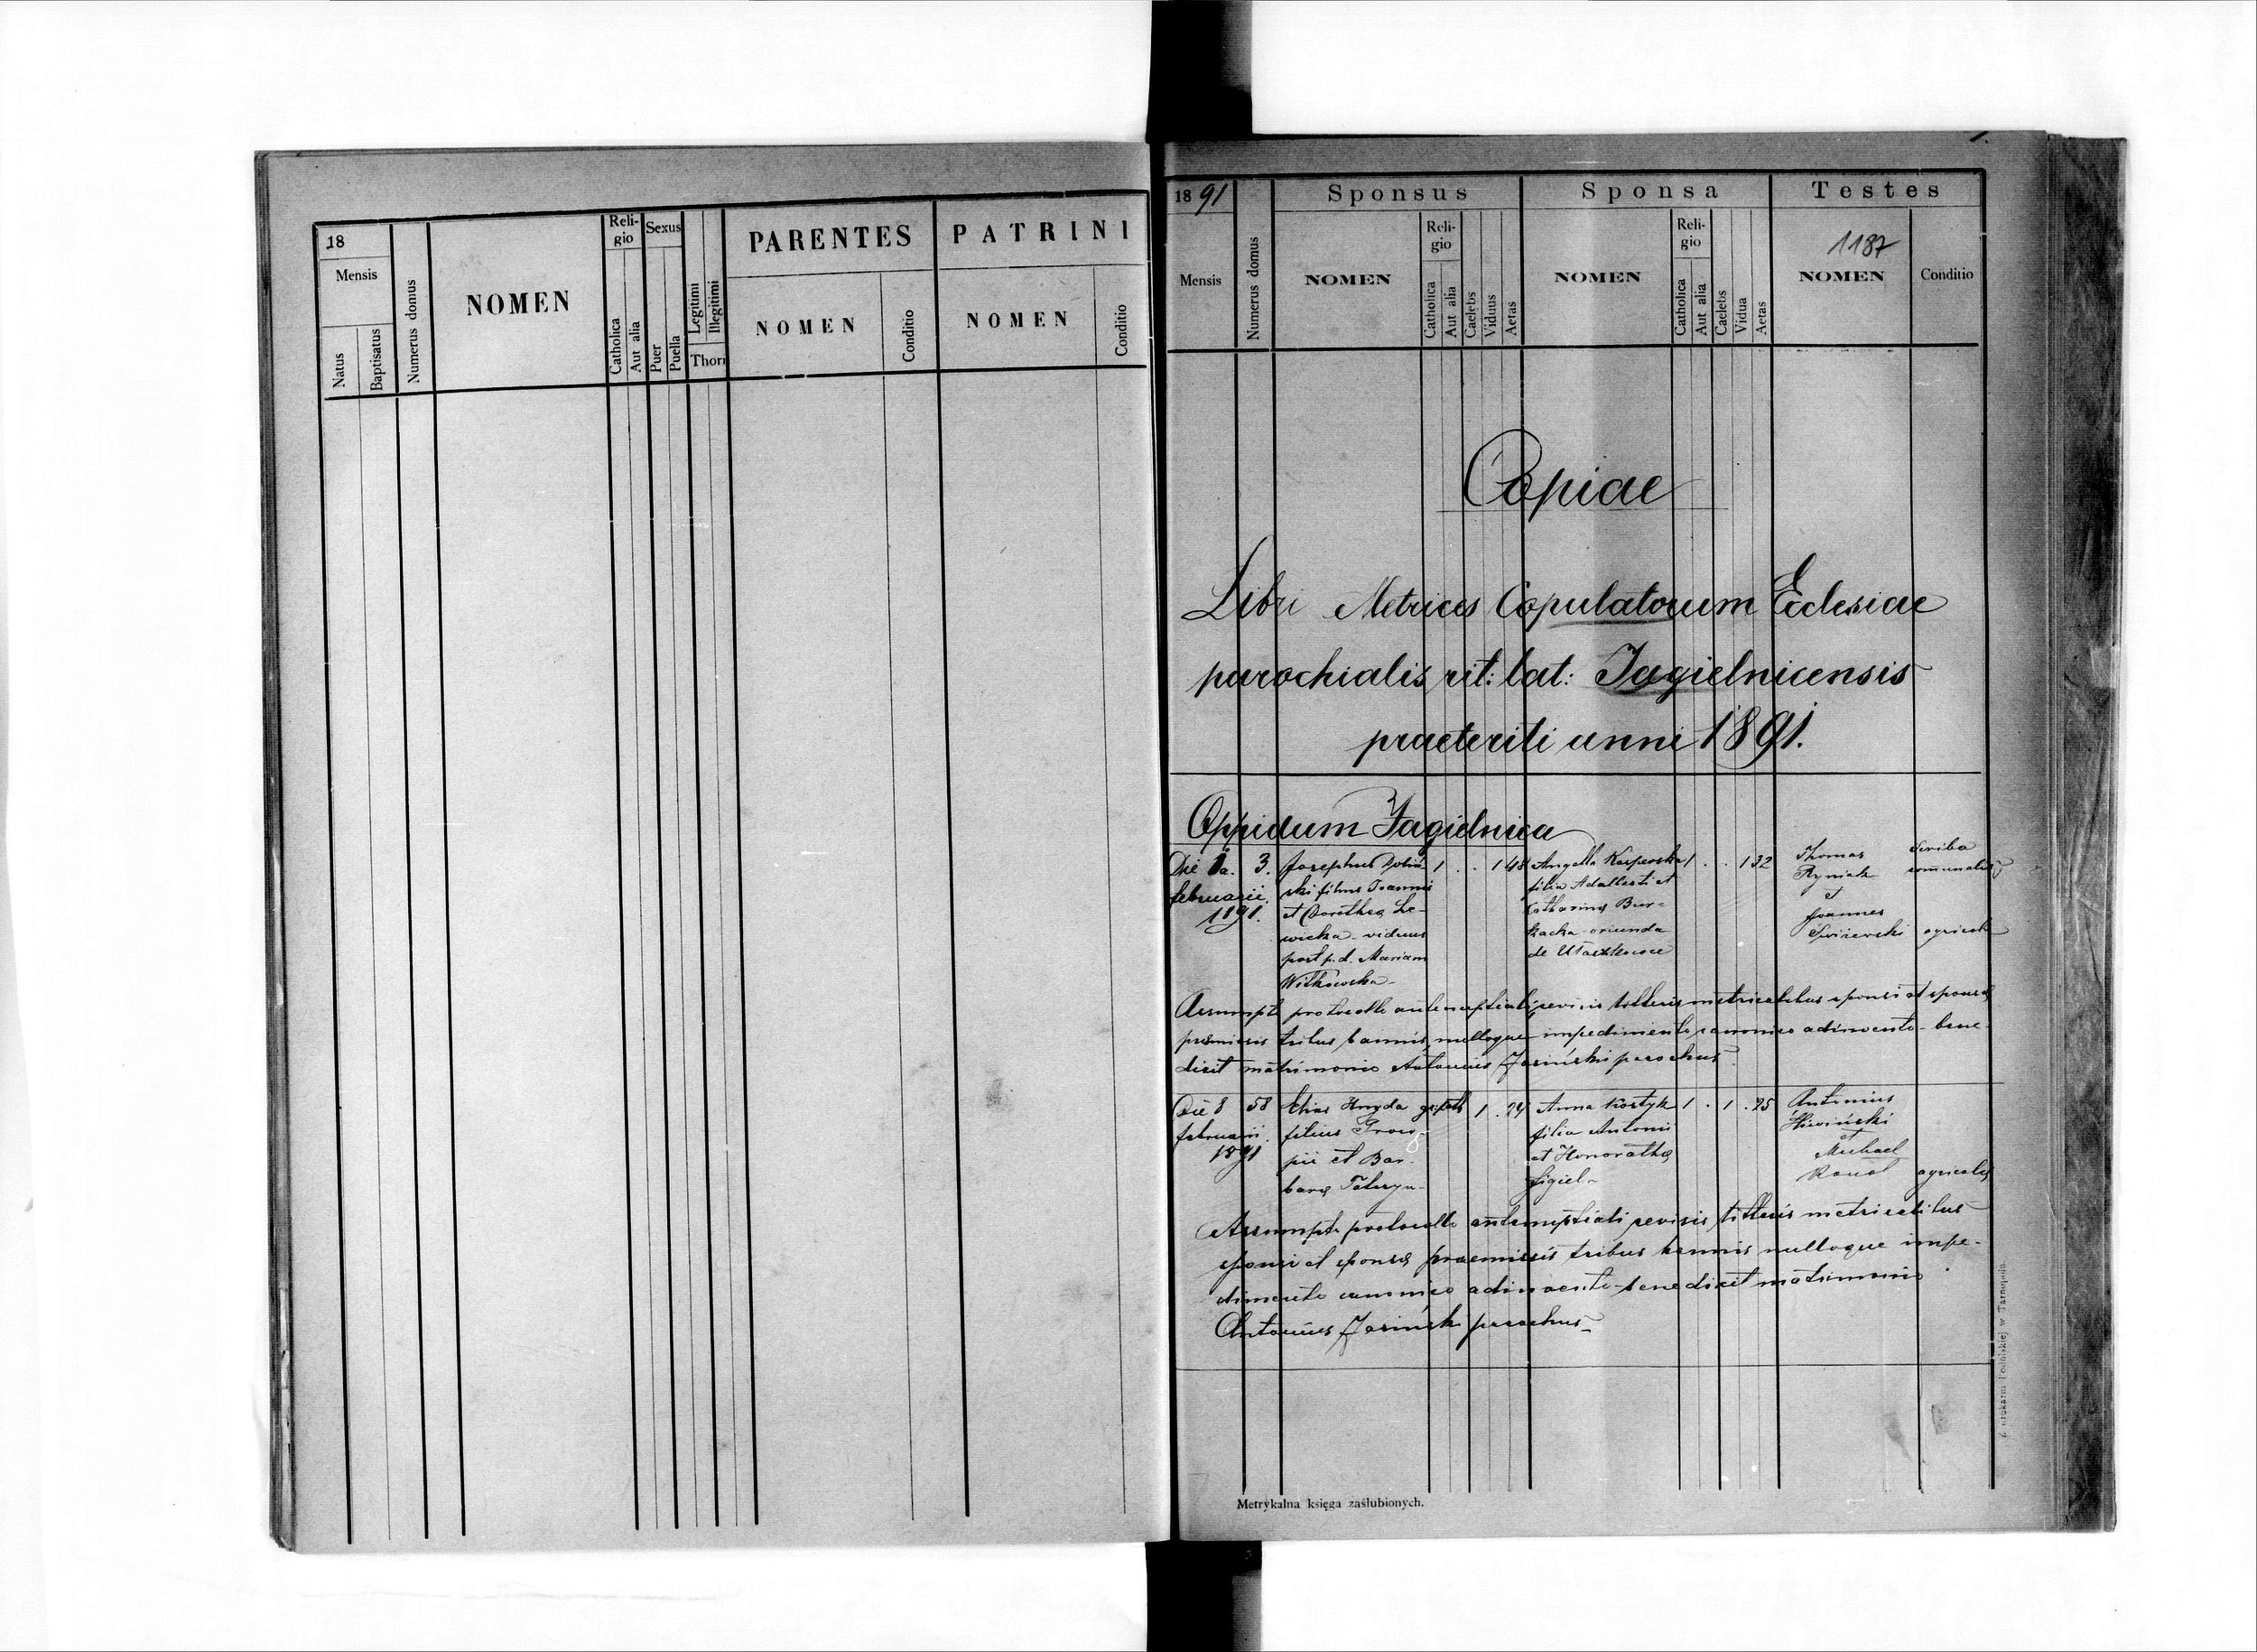 18
Mensis
Natus
Baptisatus
Numerus domus
NOMEN
Reli-
gio
Catholica
Aut alia
Sexus
Puer
Puella
Legitimi
Illegitimi
Thori
PARENTES
NOMEN
Conditio
PATRINI
NOMEN
Conditio
1.
1891
Mensis
Numerus domus
Sponsus
NOMEN
Reli-
gio
Catholica
Aut alia
Caelebs
Viduus
Aetas
Sponsa
NOMEN
Reli-
gio
Catholica
Aut alia
Caelebs
Vidua
Aetas
Testes
1187
NOMEN
Conditio
Copiae
Libri Metrices Copulatorum Ecclesiae
parochialis rit: lat: Jagielnicensis
praeteriti anni 1891.
Oppidum Jagielnica
Die 1a.
februarii
1891.
3.
Josephus
ski filius Joannis
et Dorothea Le-
wicka - viduus
post p. d. Mariam
Witkowska -
1 . . 1 48
Angella Kasperska
filia Adalberti et
Catharina Bur-
kacka oriunda
de
1 . . 1 32
Thomas
Ryniak
et
Joannes
Scriba
communalis
agricola
Assumpto protocollo antenuptiali, revisis litteris metricalibus sponsi et sponsa
praemissis tribus bannis nulloque impedimento canonico adinvento - bene-
dixit matrimonio Antonius Jasiński parochus
Die 8
februarii
1891
58
Elias Hnyda
filius
pii et Bar-
bara
1 . 24
Anna Kostyk
filia Antonii
et Honoratha
Figiel -
1 . 1 . 25
Antonius
et
Michael
agricola
Assumpto protocollo antenuptiali revisis litteris metricalibus
sponsi et sponsa praemissis tribus bannis nulloque impe-
dimento canonico adinvento - benedixit matrimonio
Antonius Jasiński parochus -
Metrykalna księga zaślubionych.